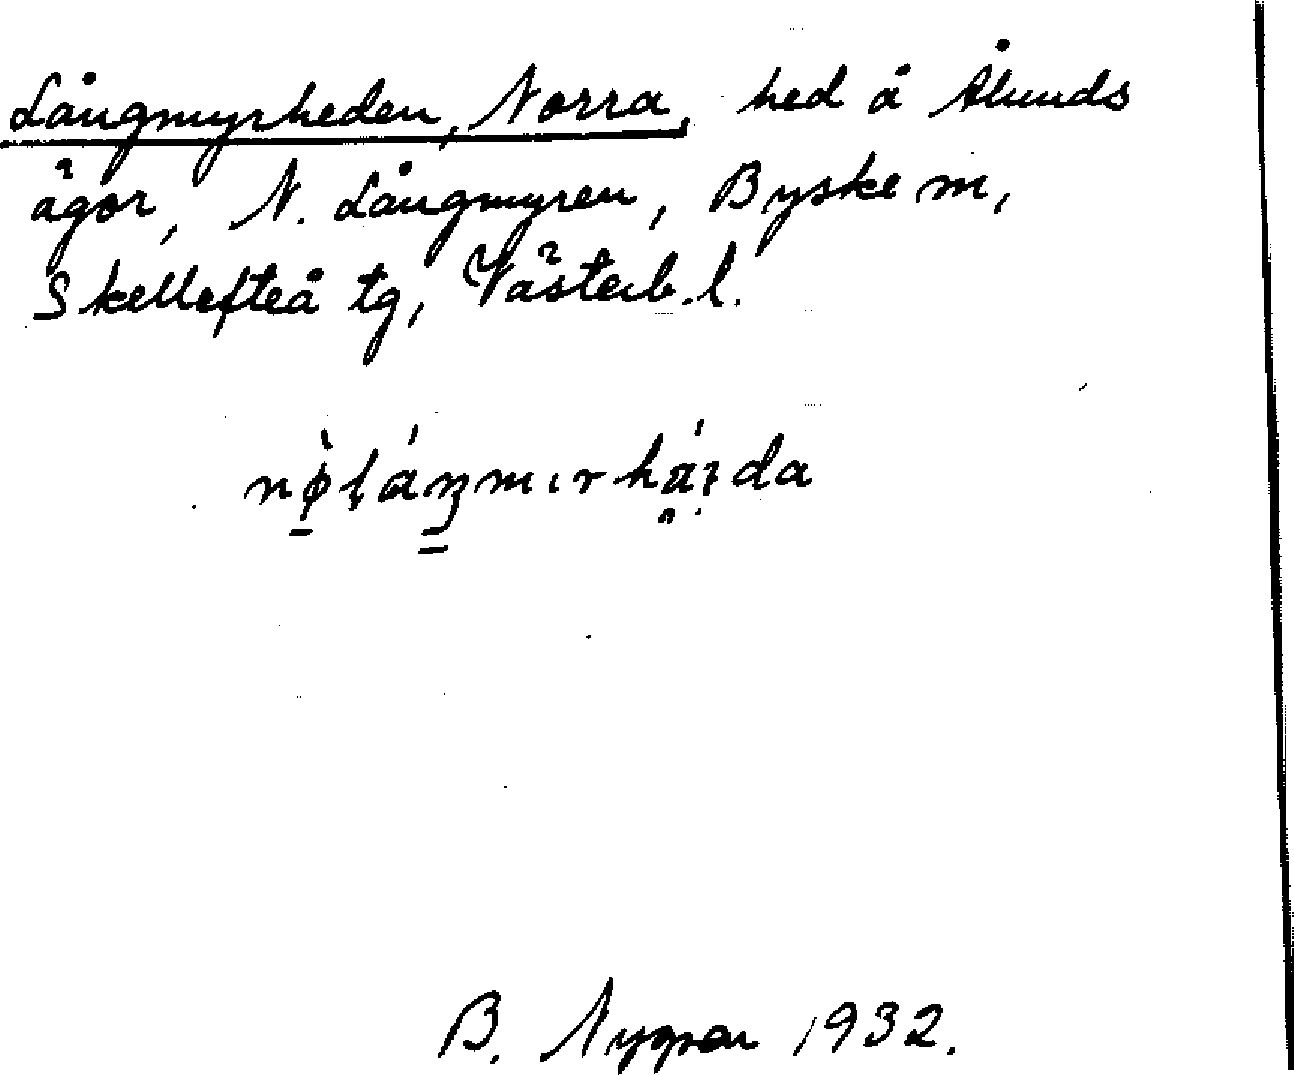 Långmyrheden, Norra, hed å Ålunds
ägor, N. Långmyren, Byske sn,
Skellefteå tg, Västerb. l.
B. Nygren 1932.